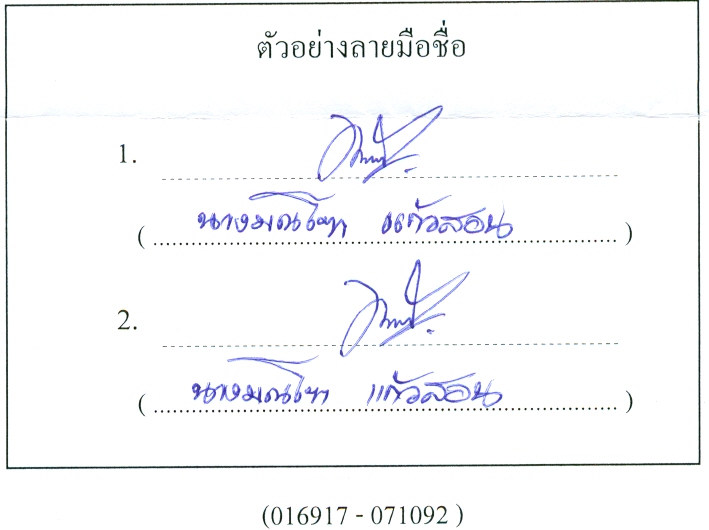 ตัวอย่างลายมือชื่อ
1.
( นางมณโฑ แก้วสอน )
2.
( นางมณโฑ แก้วสอน )
(016917 - 071092 )